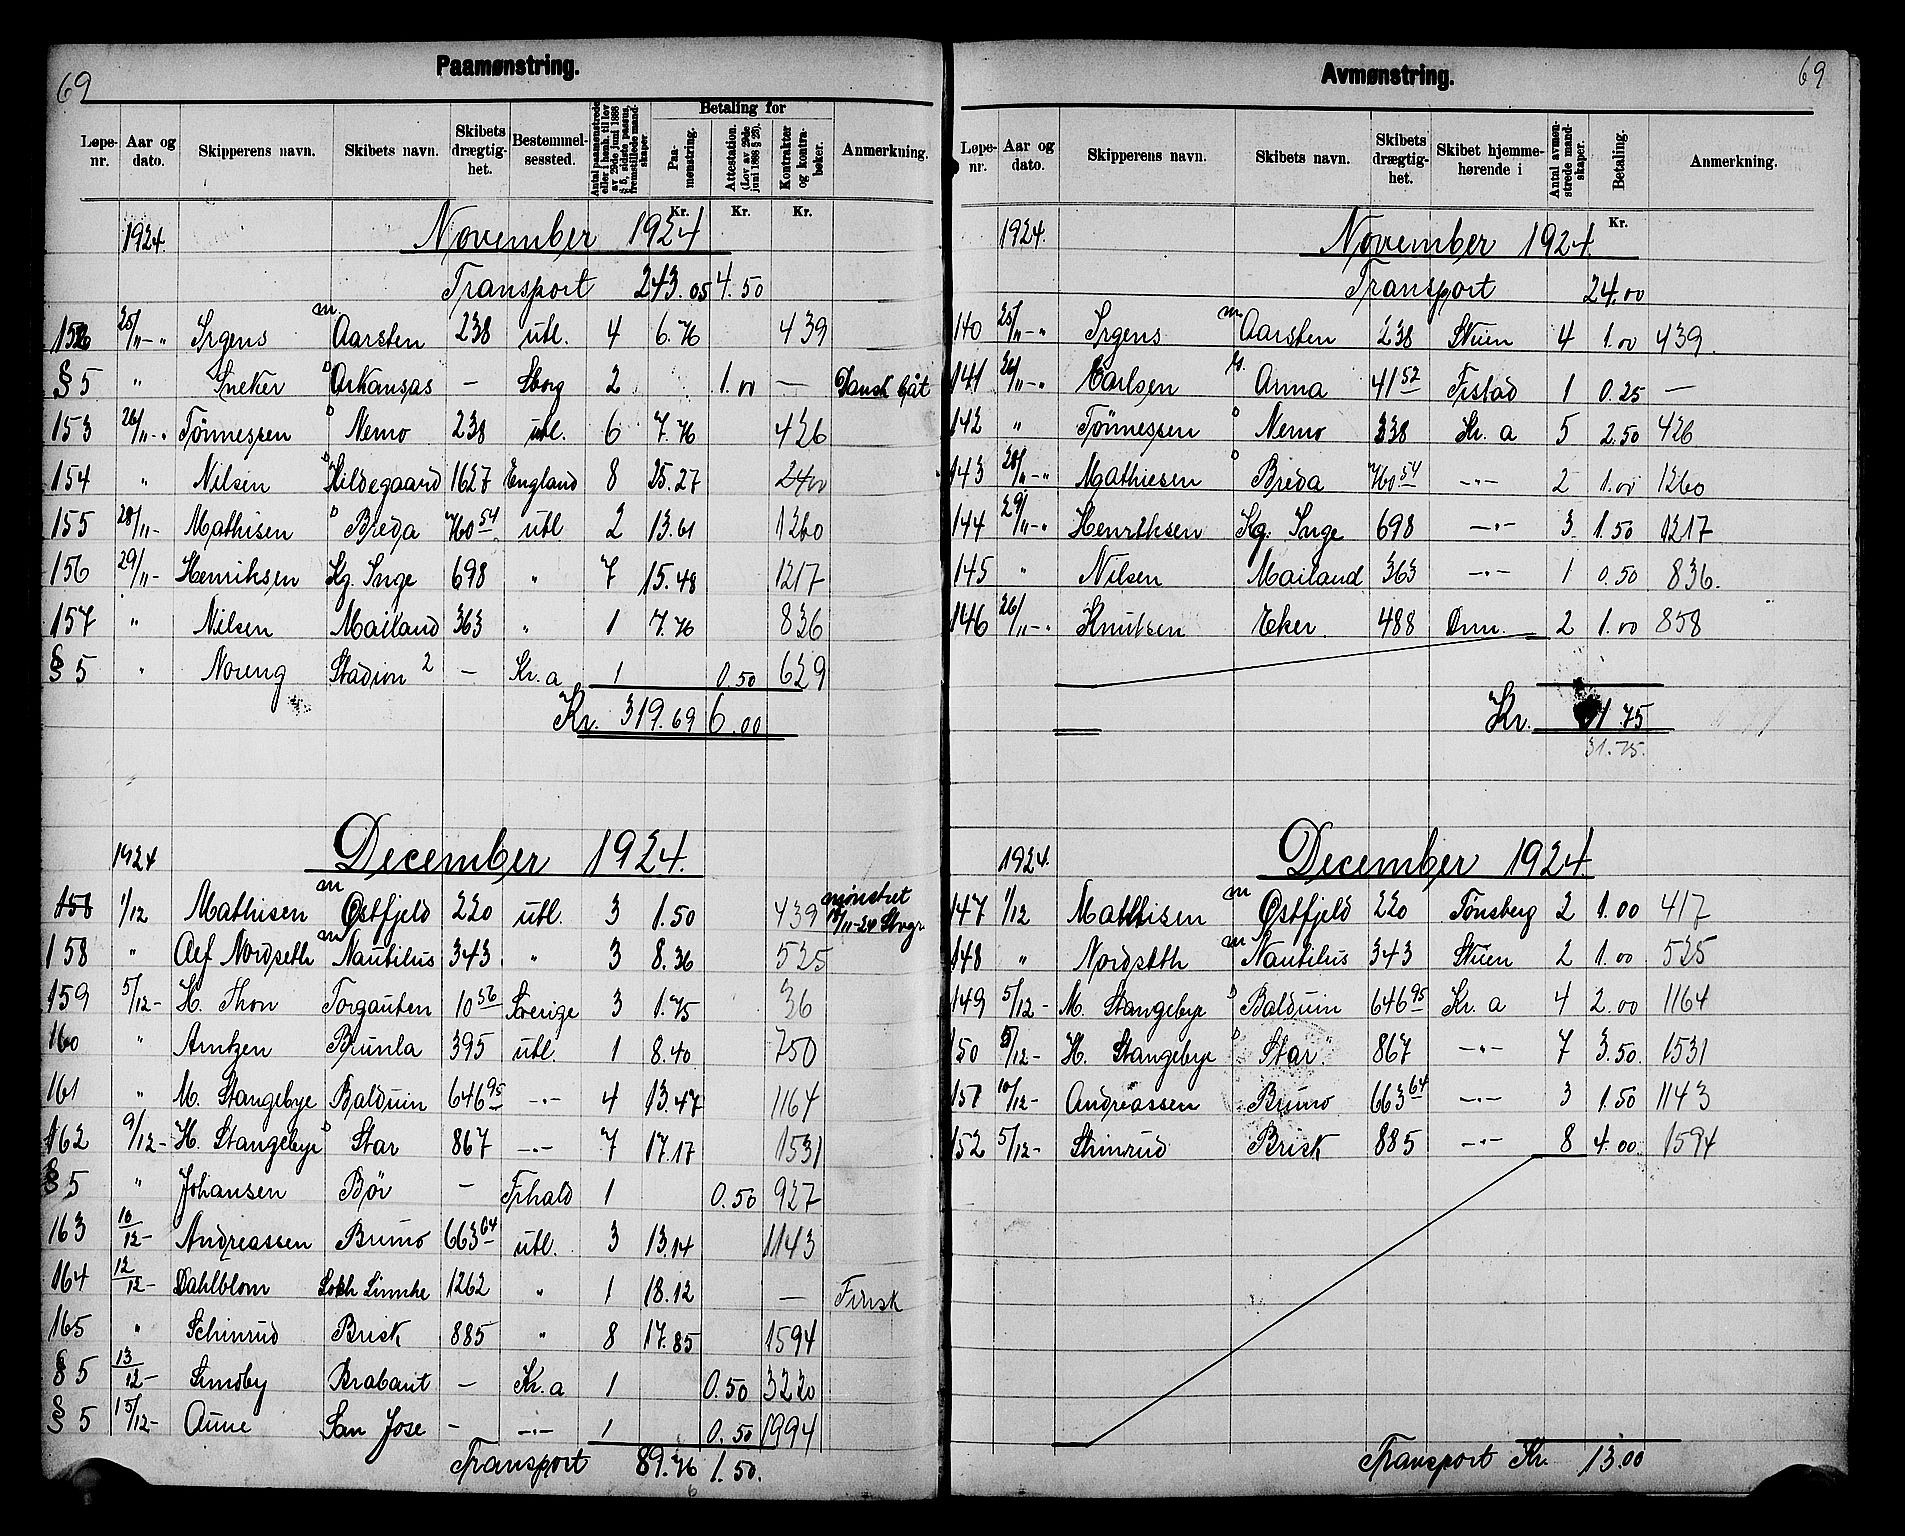 69
Paamønstring.
Løpe-nr. Aar og dato. Skipperens navn. Skibets navn. Skibets drægtighet. Bestemmelsessted. Antal paamønstrede eller i henh. til lov av 29de juni 1888 § 5, sidste passus, fremstillede mandskaper Betaling for Paamønstring. Attestation. (Lov av 29de juni 1888 § 25). Kontrakter og kontrabøker. Anmerkning.
Kr. Kr. Kr.
1924. November 1924
Transport 243.05 4.50
152 25/11-" Irgens m Aarsten 238 utl. 4 6.76 439
§ 5 " Sneker D Arkansas — Sborg 2 1.00 — Dansk båt
153 26/11-" Tönnessen D Nemo 238 utl. 6 7.76 426
154 " Nilsen D Hildegaard 1627 England 8 25.27 2400
155 28/11- Mathisen D Breda 760 54 utl 2 13.61 1260
156 29/11- Henriksen Kg. Inge 698 " 7 15.48 1217
157 " Nilsen Mailand 363 " 1 7.76 836
§ 5 " Noreng Stadion 2 — Kr.a 1 0.50 629
Kr. 319.69 6.00
1924 December 1924.
158 1/12 Mathisen m Østfjeld 220 utl. 3 1.50 439 mønstret
158 " Alf Nordseth m Nautilus 343 " 3 8.36 525
159 5/12- H. Thon Torgauten 10 56 Sverige 3 1.75 36
160 " Arntzen Brunla 395 utl 1 8.40 750
161 " M. Stangebye Balduin 646 95 -"- 4 13.47 1164
162 9/12- H. Stangebye D Star 867 -"- 7 17.17 1531
§ 5 " Johansen Bør — Frhald 1 0.50 927
163 10/12- Andreassen Bruno 663 64 utl. 3 13.14 1143
164 12/12- Dahlblom 1262 " 1 18.12 — Finsk
165 " Brisk 885 " 8 17.85 1594
§ 5 13/12- Sundby Brabant — Kr.a 1 0.50 3220
§ 5 15/12- Aune San Jose — -"- 1 0.50 1994
Transport 89.76 1.50.
6
69
Avmønstring.
Løpe-nr. Aar og dato. Skipperens navn. Skibets navn. Skibets drægtighet. Skibet hjemmehørende i Antal avmønstrede mandskaper. Betaling. Anmerkning.
Kr.
1924. November 1924.
Transport 24.00
140 25/11-" Irgens m Aarsten 238 Stuen 4 1.00 439.
141 26/11-" Carlsen Anna 41 52 Frstad 1 0.25 —
142 " Tönnessen D Nemo 338 Kr. a 5 2.50 426
143 28/11-" Mathiesen D Breda 760 54 -"- 2 1.00 1260
144 29/11-" Henriksen Kg. Inge 698 -"- 3 1.50 1217
145 " Nilsen Mailand 363 -"- 1 0.50 836.
146 26/11-" Knutsen Eker. 488 Dmn. 2 1.00 858
Kr. 31.75
31.75.
1924. December 1924.
147 1/12 Mathisen m Østfjeld 220 Tønsberg 2 1.00 417
148 " Nordseth m Nautilus 343 Stuen 2 1.00 525
149 5/12- M. Stangebye D Balduin 646 95 Kr. a 4 2.00 1164
150 5/12- H. Stangebye D Star 867 -"- 7 3.50 1531
151 10/12- Andreassen Bruno 663 64 -"- 3 1.50 1143
152 5/12- Brisk 885 -"- 8 4.00 1594
Transport Kr. 13.00